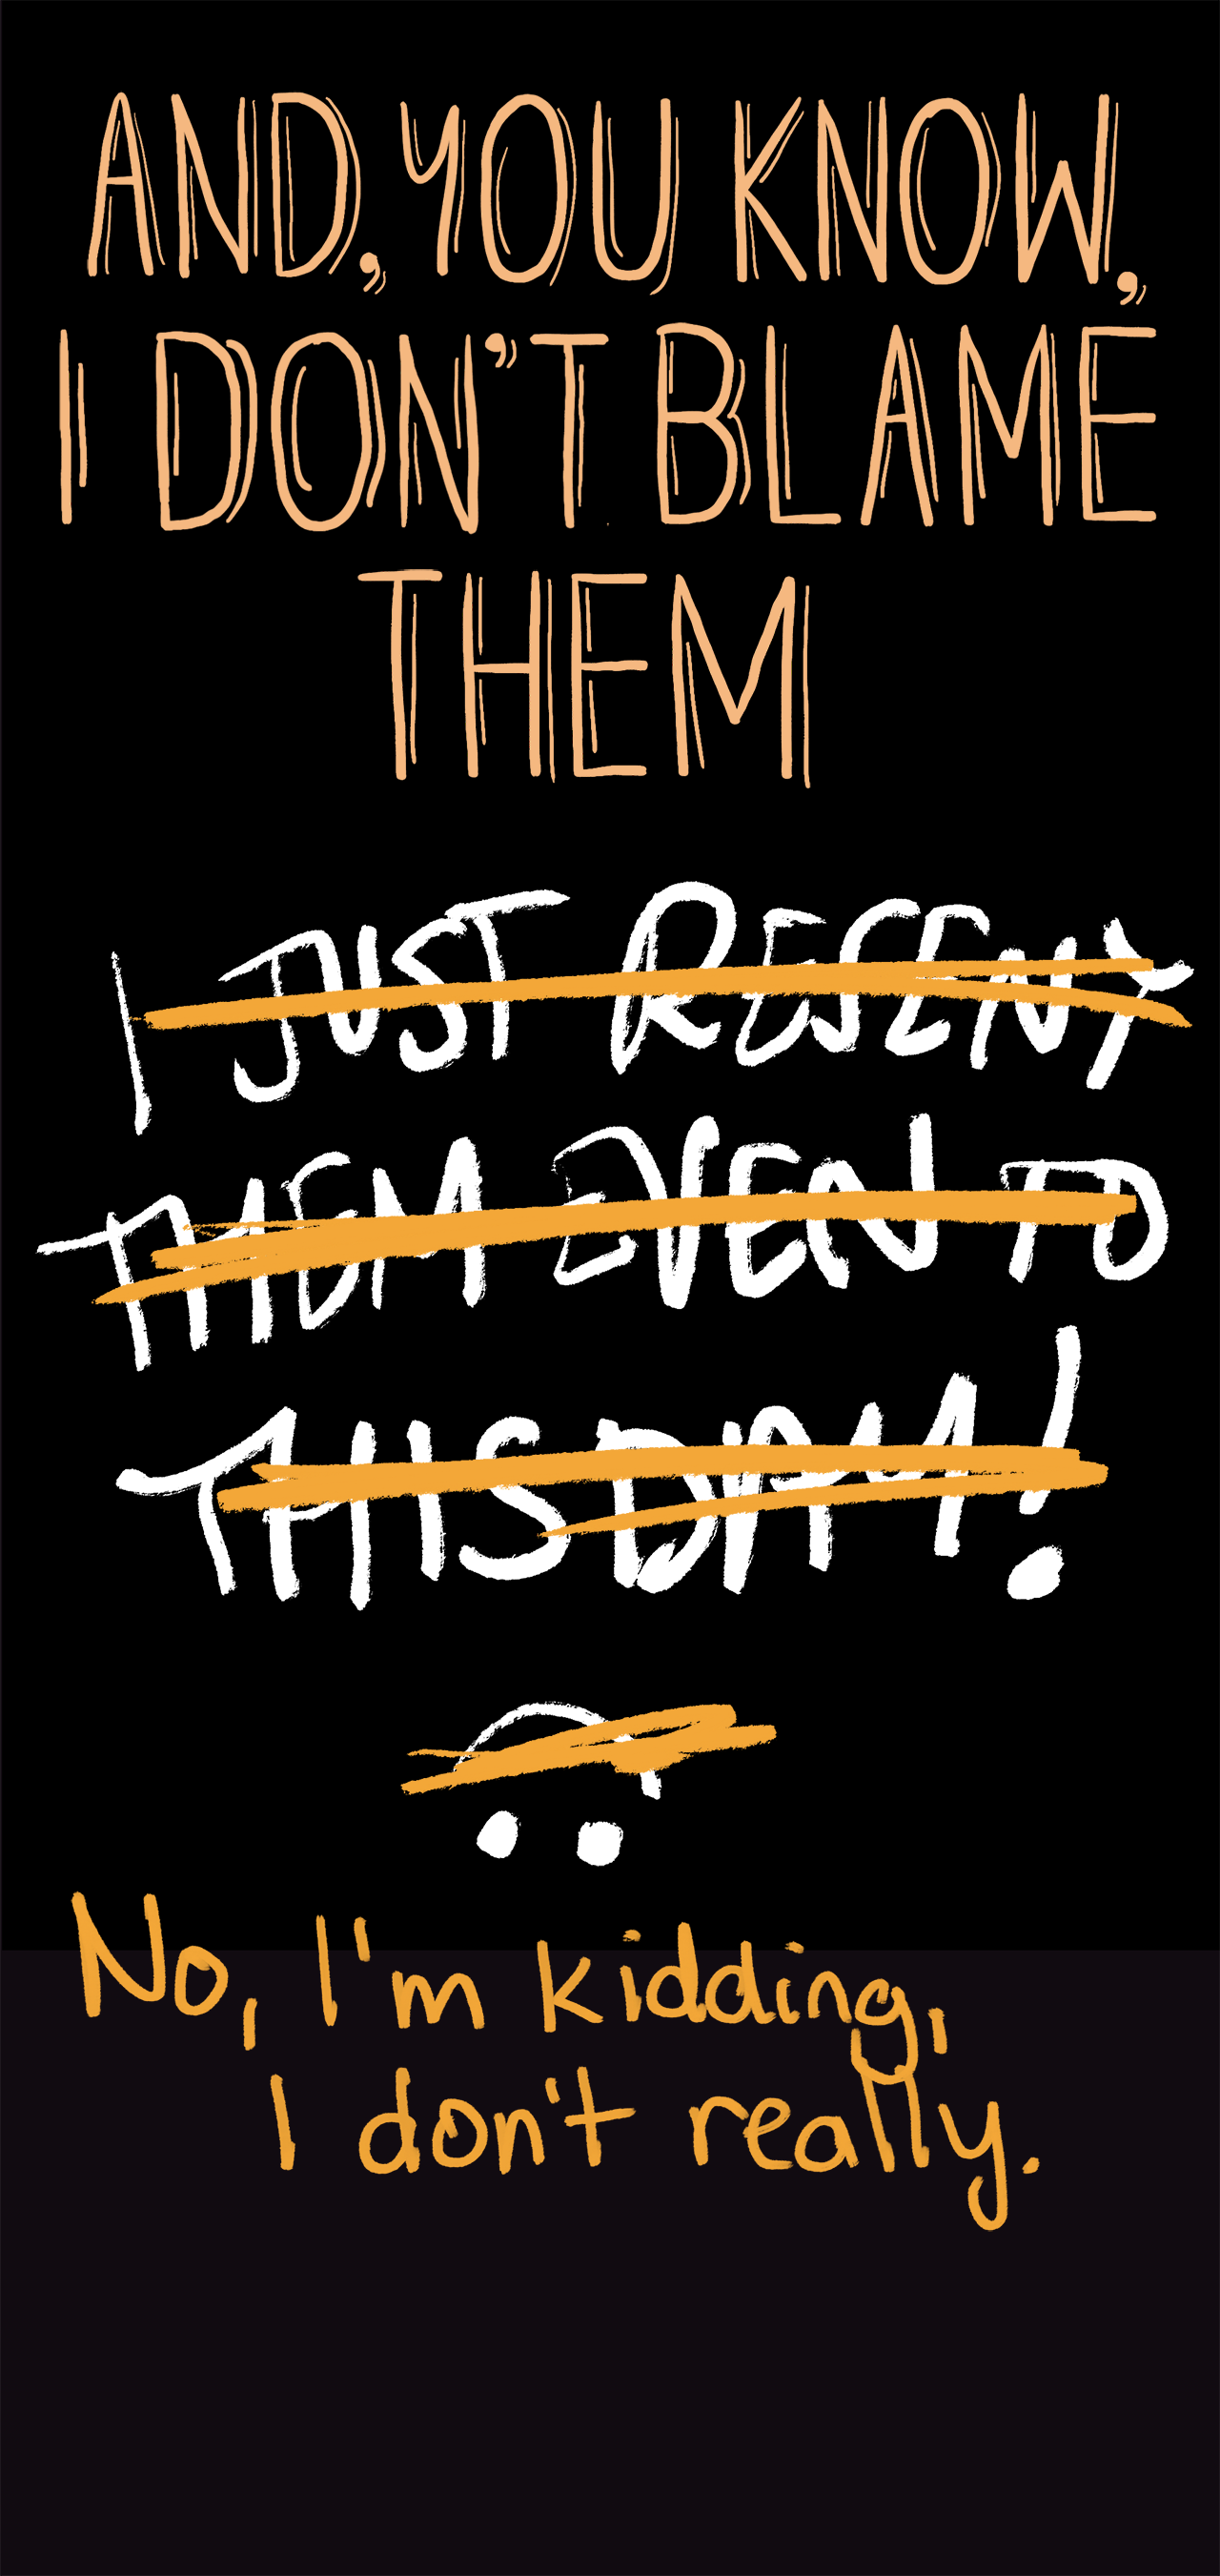 AND, YOU KNOW,
I DON'T BLAME
THEM
I JUST RESENT
THEM EVEN TO
THIS DAY!
No, I'm kidding,
I don't really.